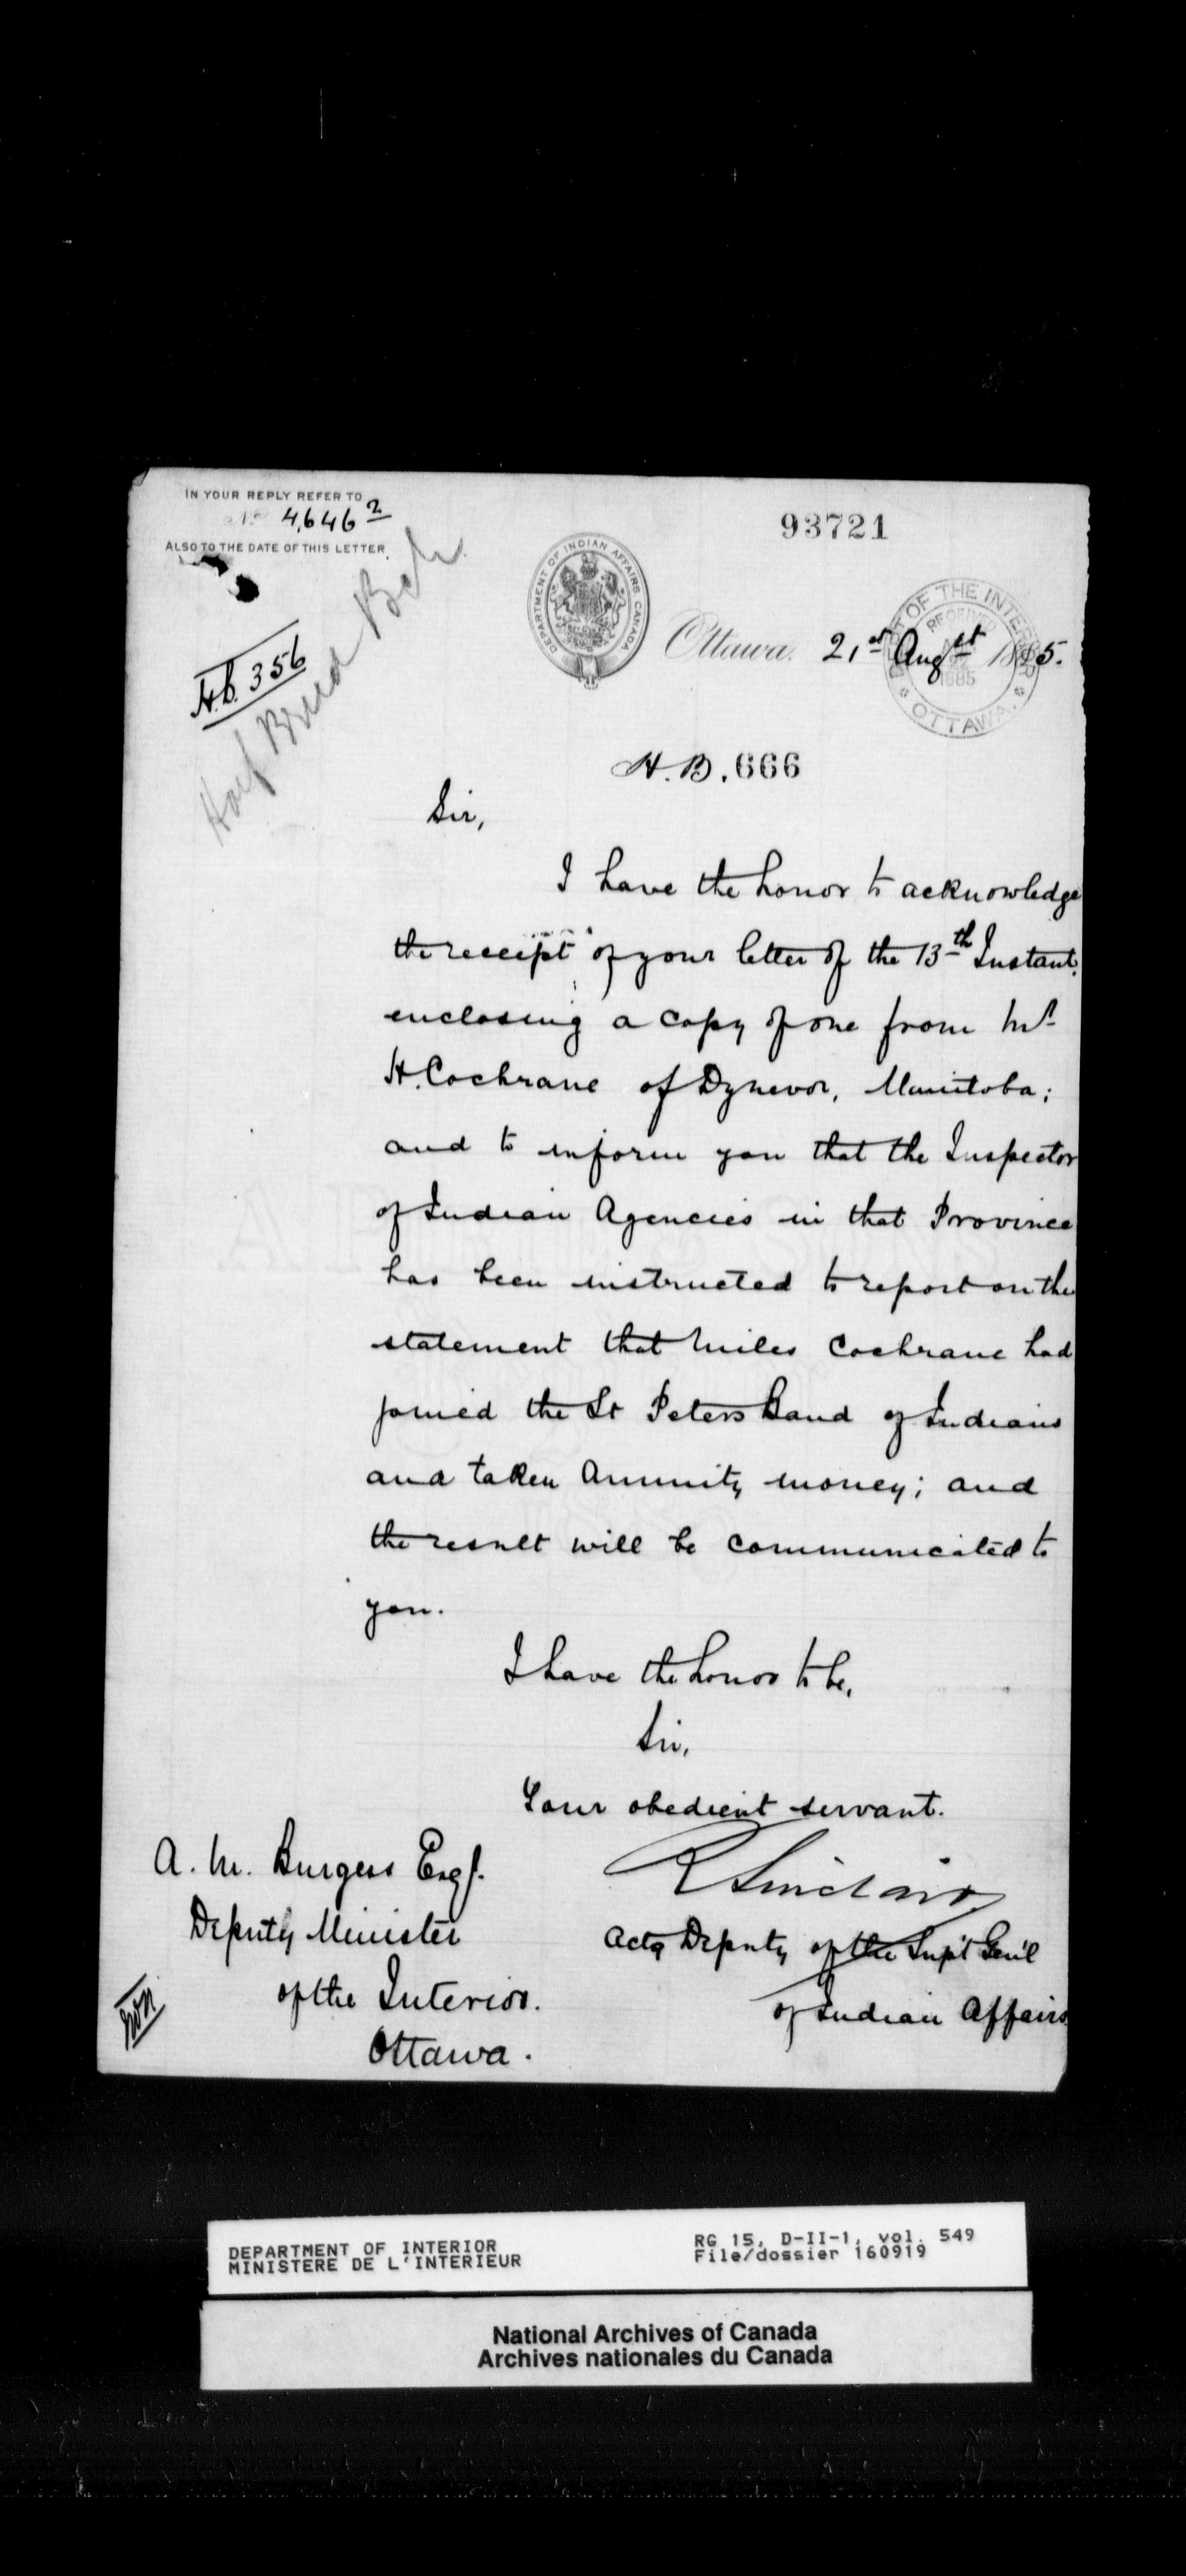 IN YOUR REPLY REFER TO
No 4,646 2
ALSO TO THE DATE OF THIS LETTER.
93721
DEPARTMENT OF INDIAN AFFAIRS CANADA
DEPT OF THE INTERIOR
RECEIVED
1885
OTTAWA.
Ottawa. 21st Augst 1885.
H.B. 356
Half Breed Bch
H.B. 666
Sir,
I have the honor to acknowledge
the receipt of your letter of the 13th Instant,
enclosing a copy of one from Mr
H. Cochrane of Dynevor, Manitoba;
and to inform you that the Inspector
of Indian Agencies in that Province
has been instructed to report on the
statement that Miles Cochrane had
joined the St Peters Band of Indians
and taken Annuity money; and
the result will be communicated to
you.
I have the honor to be,
Sir,
Your obedient servant.
R Sinclair
Actg Deputy of the Sup't Gen'l
of Indian Affairs
A. M. Burgess Esq.
Deputy Minister
of the Interior.
Ottawa.
DEPARTMENT OF INTERIOR
MINISTERE DE L'INTERIEUR
RG 15, D-II-1, vol. 549
File/dossier 160919
National Archives of Canada
Archives nationales du Canada